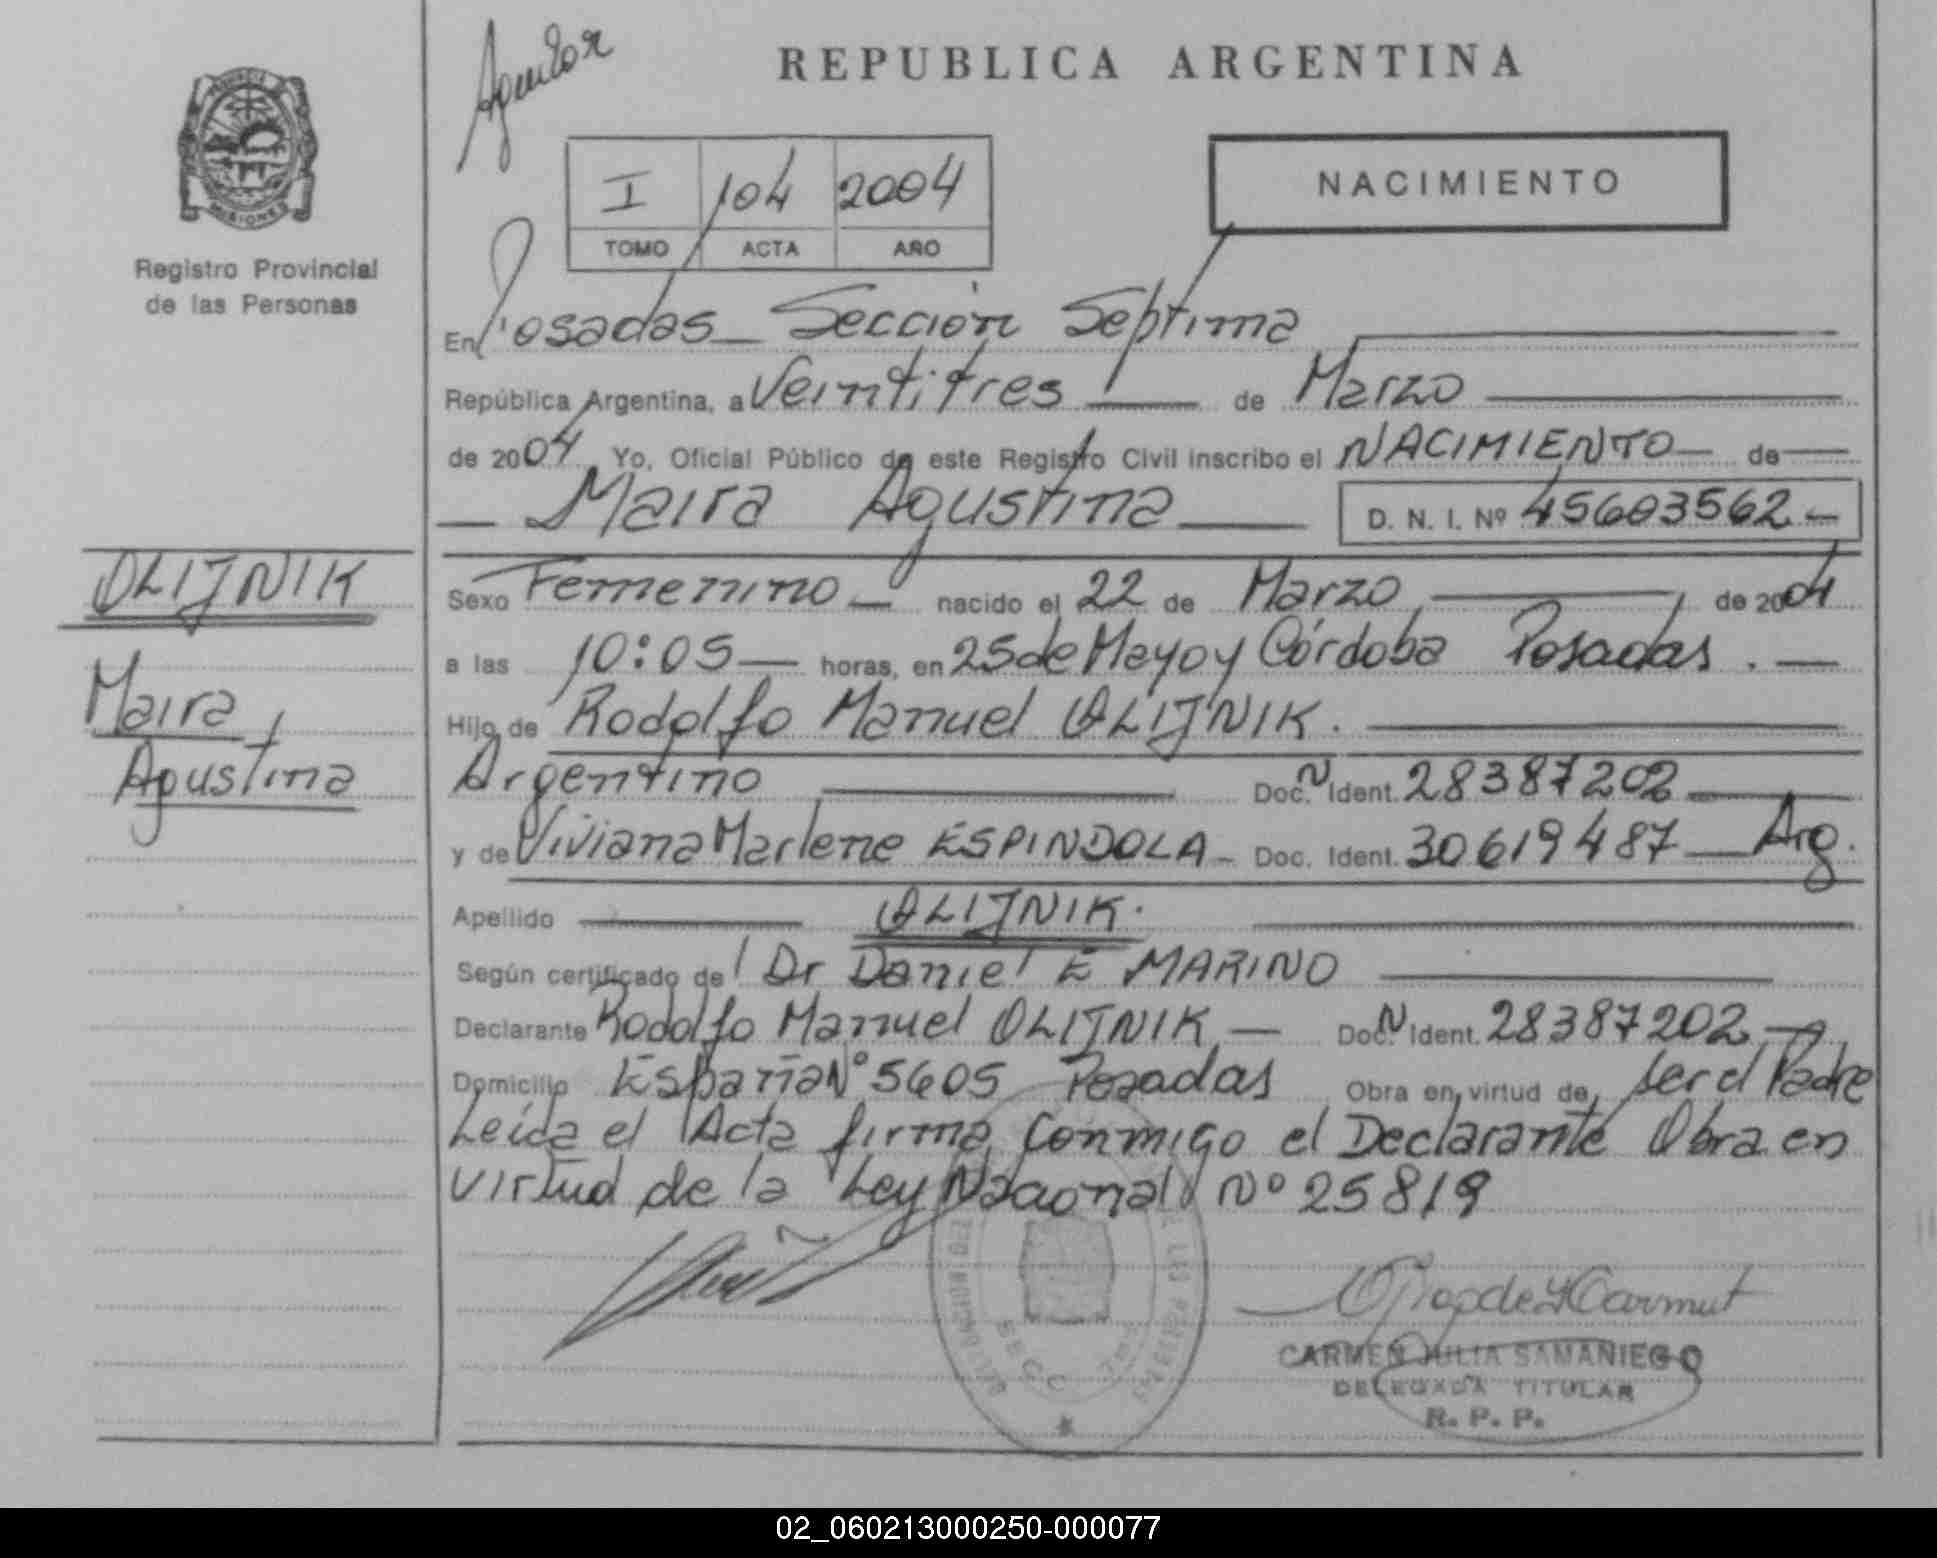 Aguilar
REPUBLICA ARGENTINA
PROVINCIA
MISIONES
Registro Provincial
de las Personas
I 104 2004
TOMO ACTA AÑO
NACIMIENTO
En Posadas Sección Septima
República Argentina, a Veintitres de Marzo
de 2004 Yo, Oficial Público de este Registro Civil inscribo el NACIMIENTO de
Maira Agustina D. N. I. Nº 45603562.-
OLIJNIK
Maira
Agustina
Sexo Femenino nacido el 22 de Marzo de 2004
a las 10:05 horas, en 25 de Mayo y Córdoba Posadas.
Hijo de Rodolfo Manuel OLIJNIK.
Argentino Doc. N Ident. 28387202
y de Viviana Marlene ESPINDOLA Doc. Ident. 30619487 Arg.
Apellido OLIJNIK.
Según certificado de Dr Daniel E MARINO
Declarante Rodolfo Manuel OLIJNIK Doc. N Ident. 28387202
Domicilio España Nº 5605 Posadas Obra en virtud de ser el Padre
Leida el Acta firma conmigo el Declarante Obra en
virtud de la Ley Nacional Nº 25819
SECC
CARMEN JULIA SAMANIEGO
DELEGADA TITULAR
R. P. P.
02_060213000250-000077